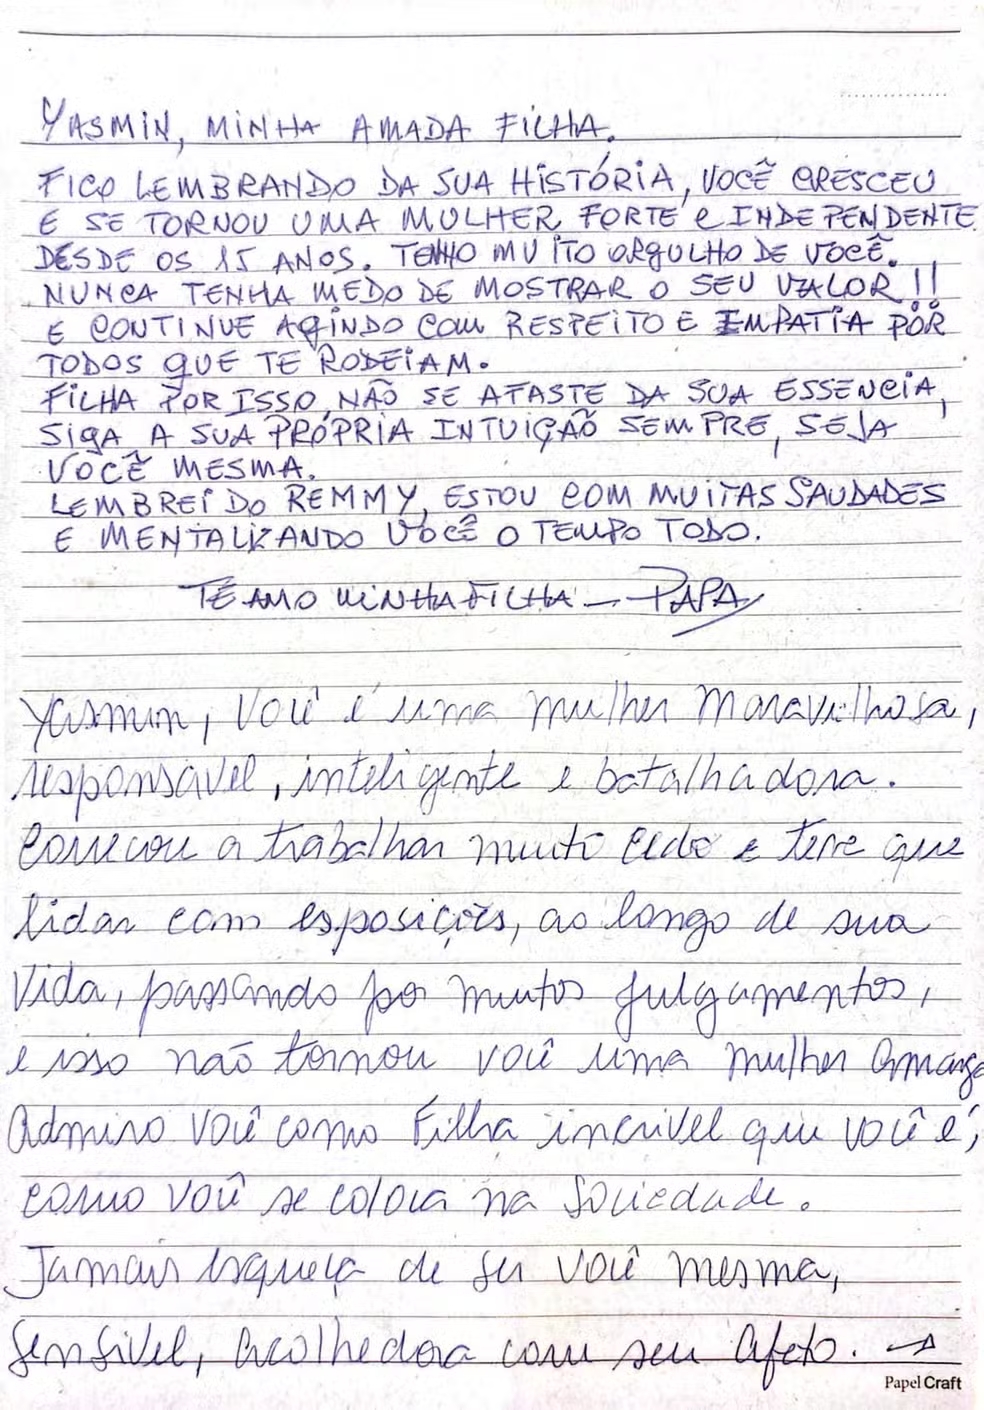 YASMIN, MINHA AMADA FILHA.
FICO LEMBRANDO DA SUA HISTÓRIA, VOCÊ CRESCEU
E SE TORNOU UMA MULHER FORTE e INDEPENDENTE
DESDE OS 15 ANOS. TENHO MUITO ORGULHO DE VOCÊ.
NUNCA TENHA MEDO DE MOSTRAR O SEU VALOR!!
E CONTINUE AGINDO COM RESPEITO E EMPATIA POR
TODOS QUE TE RODEIAM.
FILHA POR ISSO, NÃO SE AFASTE DA SUA ESSENCIA,
SIGA A SUA PRÓPRIA INTUIÇÃO SEMPRE, SEJA
VOCÊ MESMA.
LEMBREI DO REMMY, ESTOU COM MUITAS SAUDADES
E MENTALIZANDO VOCÊ O TEMPO TODO.
TE AMO MINHA FILHA — PAPA
Yasmin, você é uma mulher maravilhosa,
responsável, inteligente e batalhadora.
Começou a trabalhar muito cedo e teve que
lidar com esposições, ao longo de sua
vida, passando por muitos julgamentos,
e isso não tornou você uma mulher amarga
Admiro você como Filha incrivel que você é,
como você se coloca na sociedade.
Jamais esqueça de ser você mesma,
sensivel, acolhedora com seu afeto. →
Papel Craft